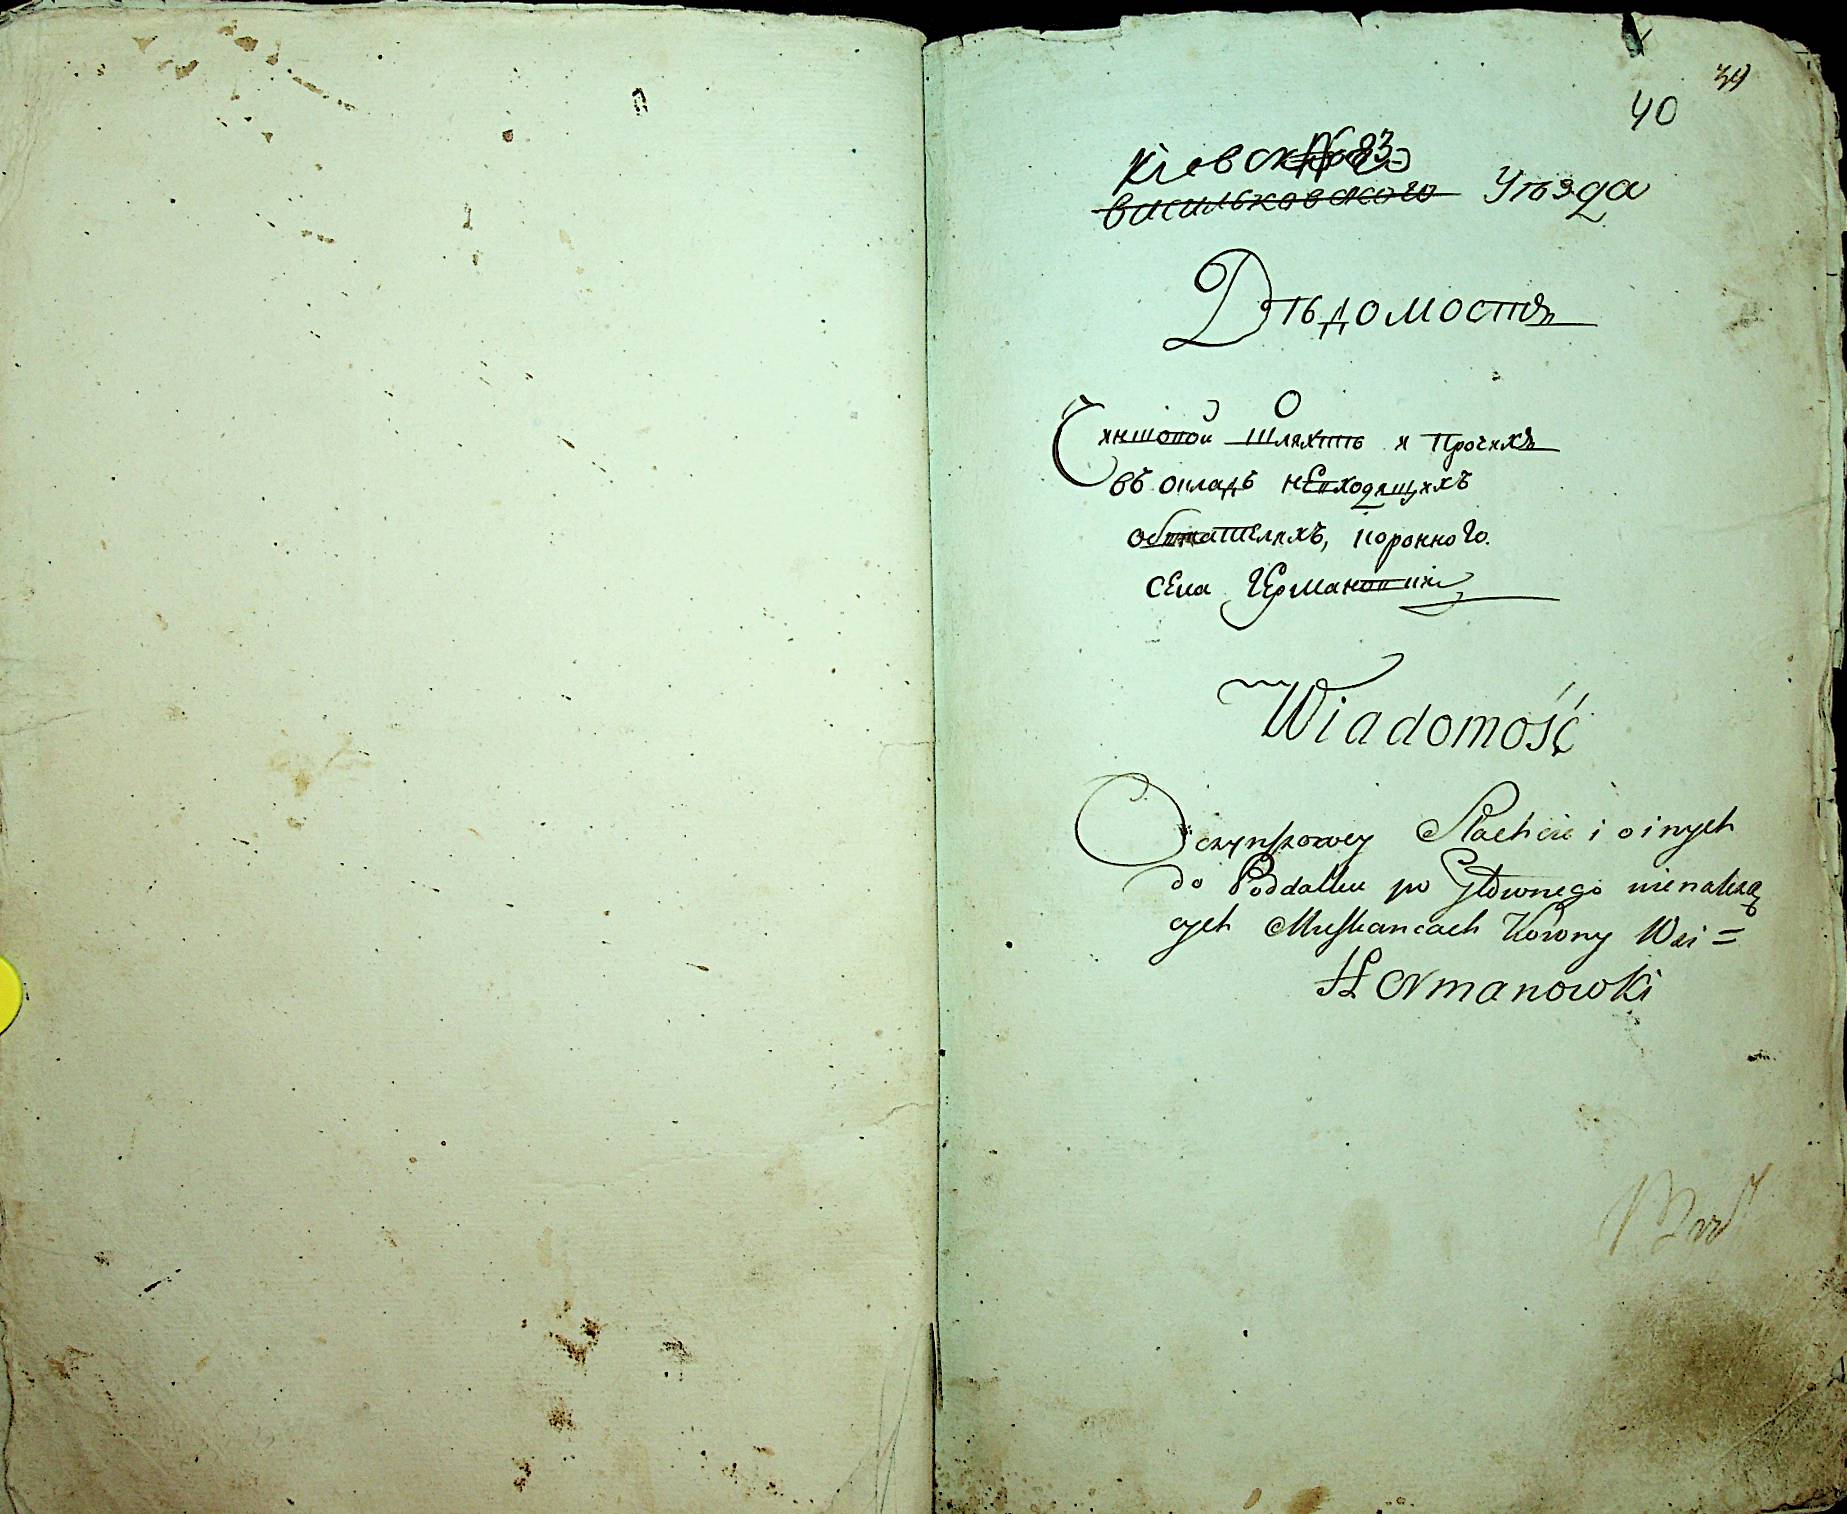 39
40
Кіевскаго №83
васильковского Уѣзда
Вѣдомость
О
Чиншовой Шляхтѣ и Прочихъ
въ окладъ невходящихъ
обитателяхъ, коронного
села Германовки
Wiadomość
O czynszowey Slachcie i o inych
do Poddatku po Głownego nienależą
cych Mieszkancach Korony Wsi =
Hermanowki